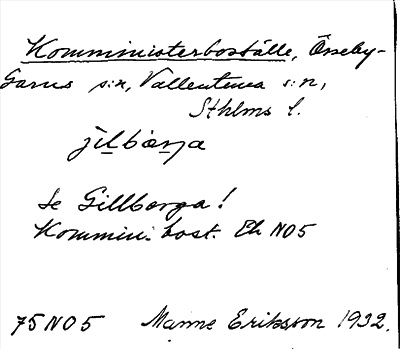 Komministerboställe, Össeby-
Garns s:n, Vallentuna s:n,
Sthlms l.
jìlbærja
Se Gillberga!
Kommin. bost. Ek NO5
75NO5 Manne Eriksson 1932.